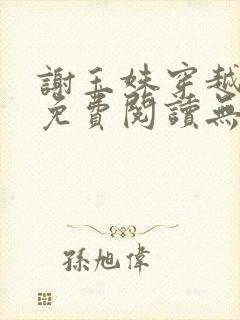 謝玉妹穿越
免費閱讀無
孫旭偉